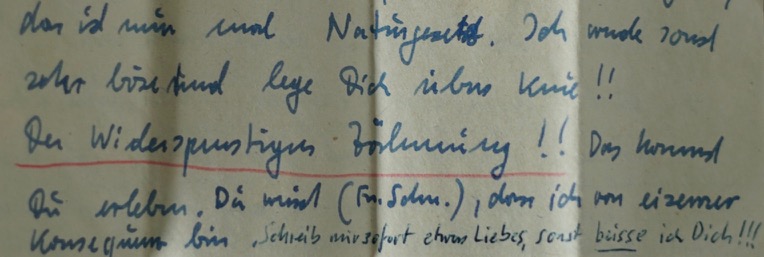 das ist nun mal Naturgesetz. Ich werde sonst
sehr böse und lege Dich übers Knie!!
Der Widerspenstigen Zähmung!! Das kannst
Du erleben. Du weisst (Frl. Schn.), dass ich von eiserner
Konsequenz bin. Schreib mir sofort etwas Liebes, sonst beisse ich Dich!!!